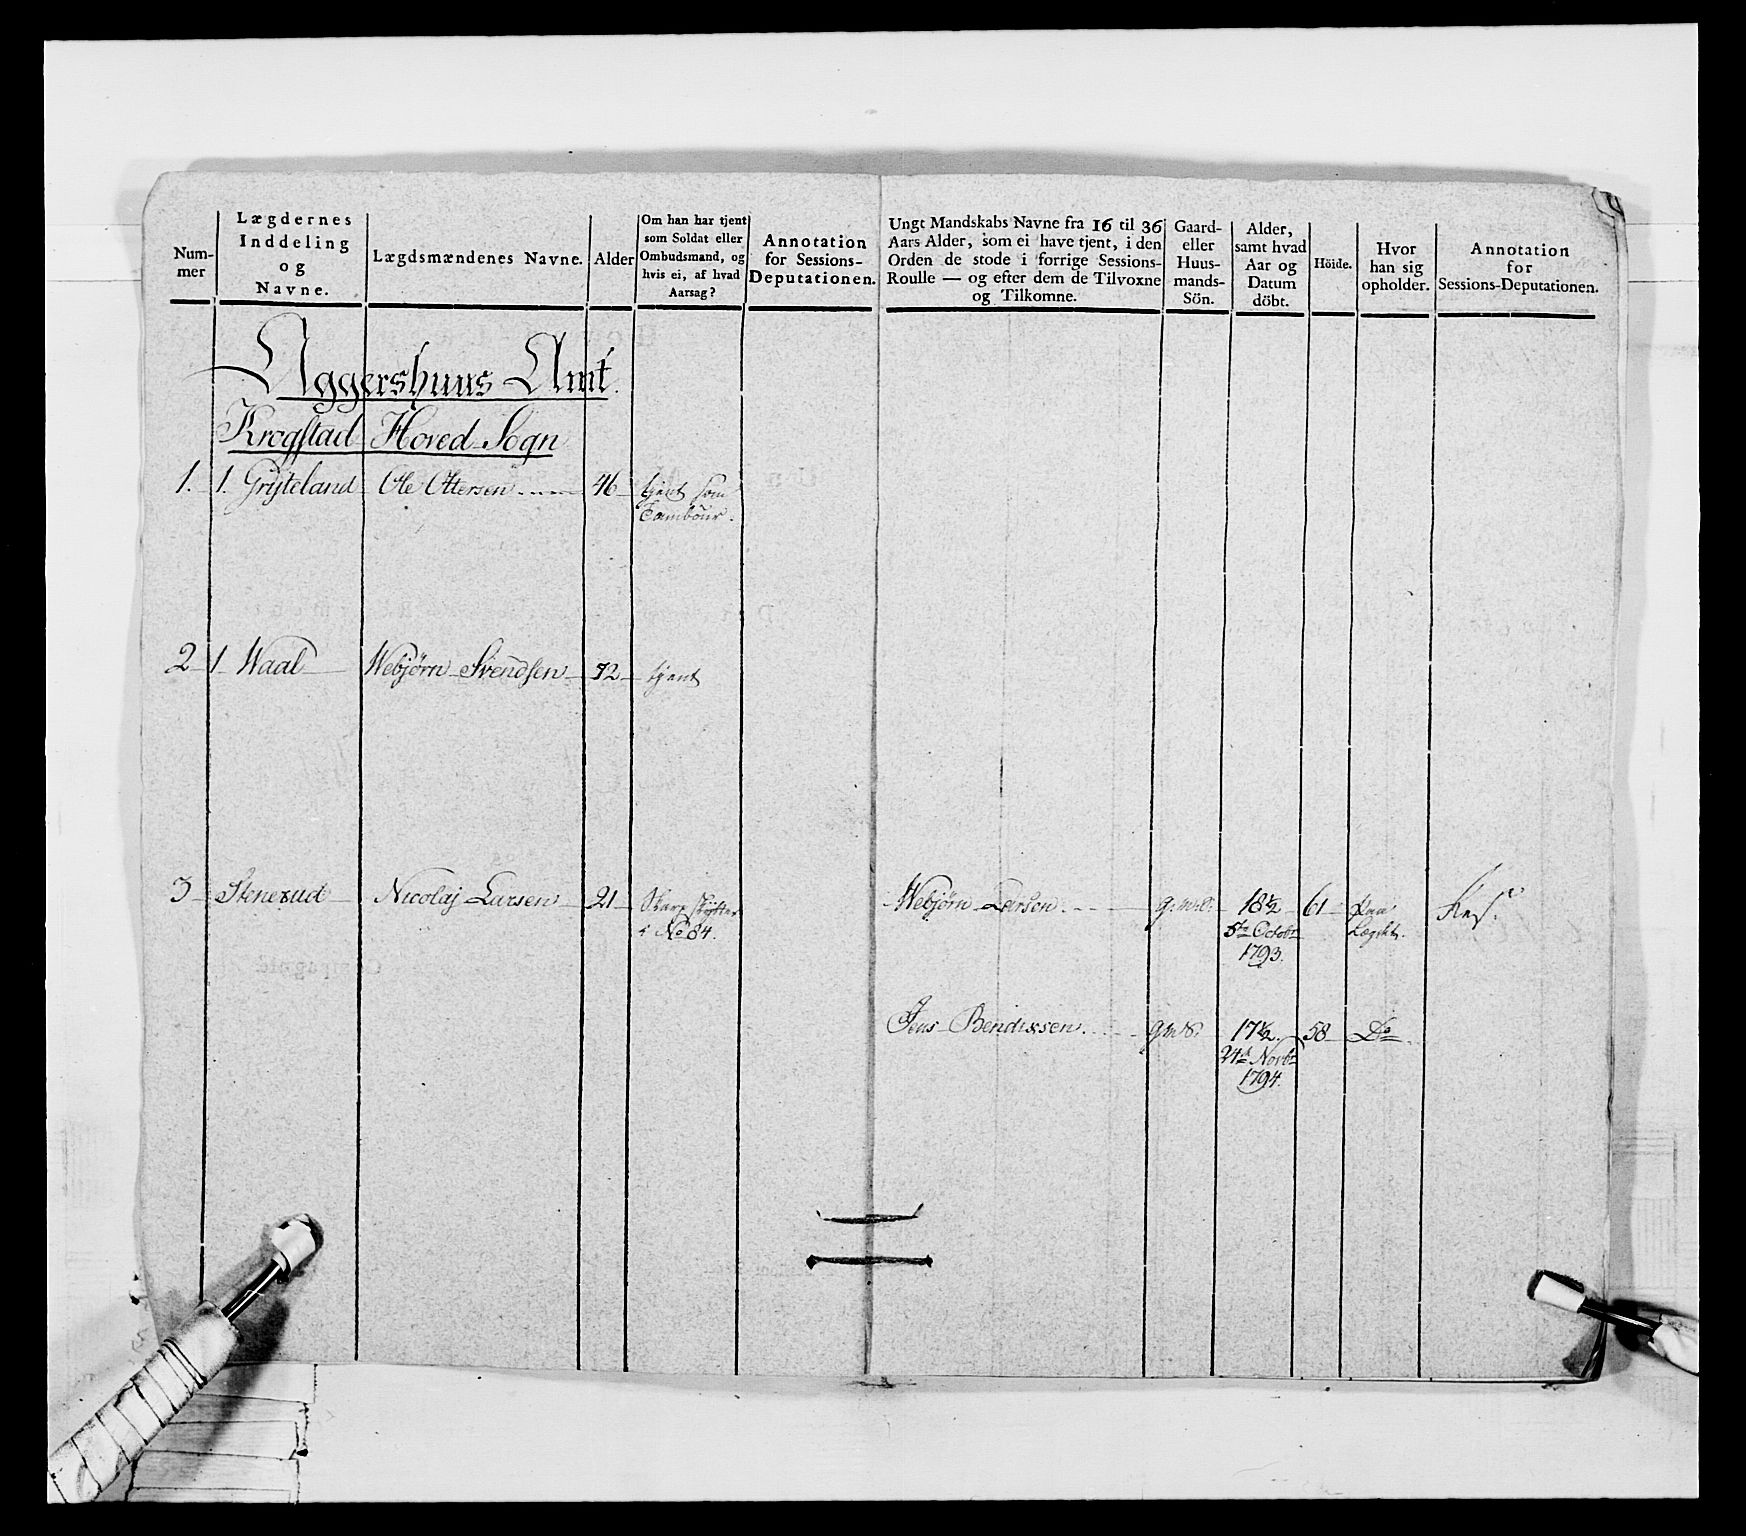 Num-
mer
Lægdernes
Inddeling
og
Navne.
Lægdsmændenes Navne.
Alder
Om han har tjent
som Soldat eller
Ombudsmand, og
hvis ei, af hvad
Aarsag?
Annotation
for Sessions-
Deputationen.
Ungt Mandskabs Navne fra 16 til 36
Aars Alder, som ei have tjent, i den
Orden de stode i forrige Sessions-
Roulle — og efter dem de Tilvoxne
og Tilkomne.
Gaard-
eller
Huus-
mands-
Sön.
Alder,
samt hvad
Aar og
Datum
döbt.
Höide.
Hvor
han sig
opholder.
Annotation
for
Sessions-Deputationen.
Aggershuus Amt.
Krogstad Hoved Sogn
1. 1. Gryteland Ole Ottersen 46 tjent som
Tambour.
2 1 Waal Webjørn Svendsen 52 tjent
3 Stenerud Nicolaj Larsen 21 Skarpskytter Webjørn Larsen. G:m:S: 18½ 61 paa
No 84. 5te Octobr Lægdet.
1793.
Jens Bendixsen. G:m:S: 17½ 58 Do
24d Novbr
1794.